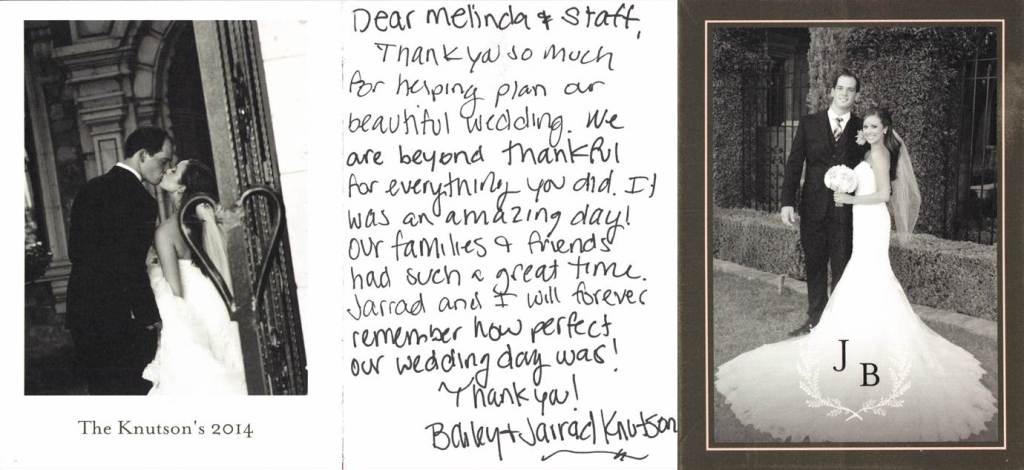 The Knutson's 2014
Dear Melinda & Staff,
Thank ya so much
for helping plan our
beautiful wedding. We
are beyond thankful
for everything you did. It
was an amazing day!
Our families & friends
had such a great time.
Jarrad and I will forever
remember how perfect
our wedding day was!
Thank ya!
Bailey + Jarrad Knutson
J B